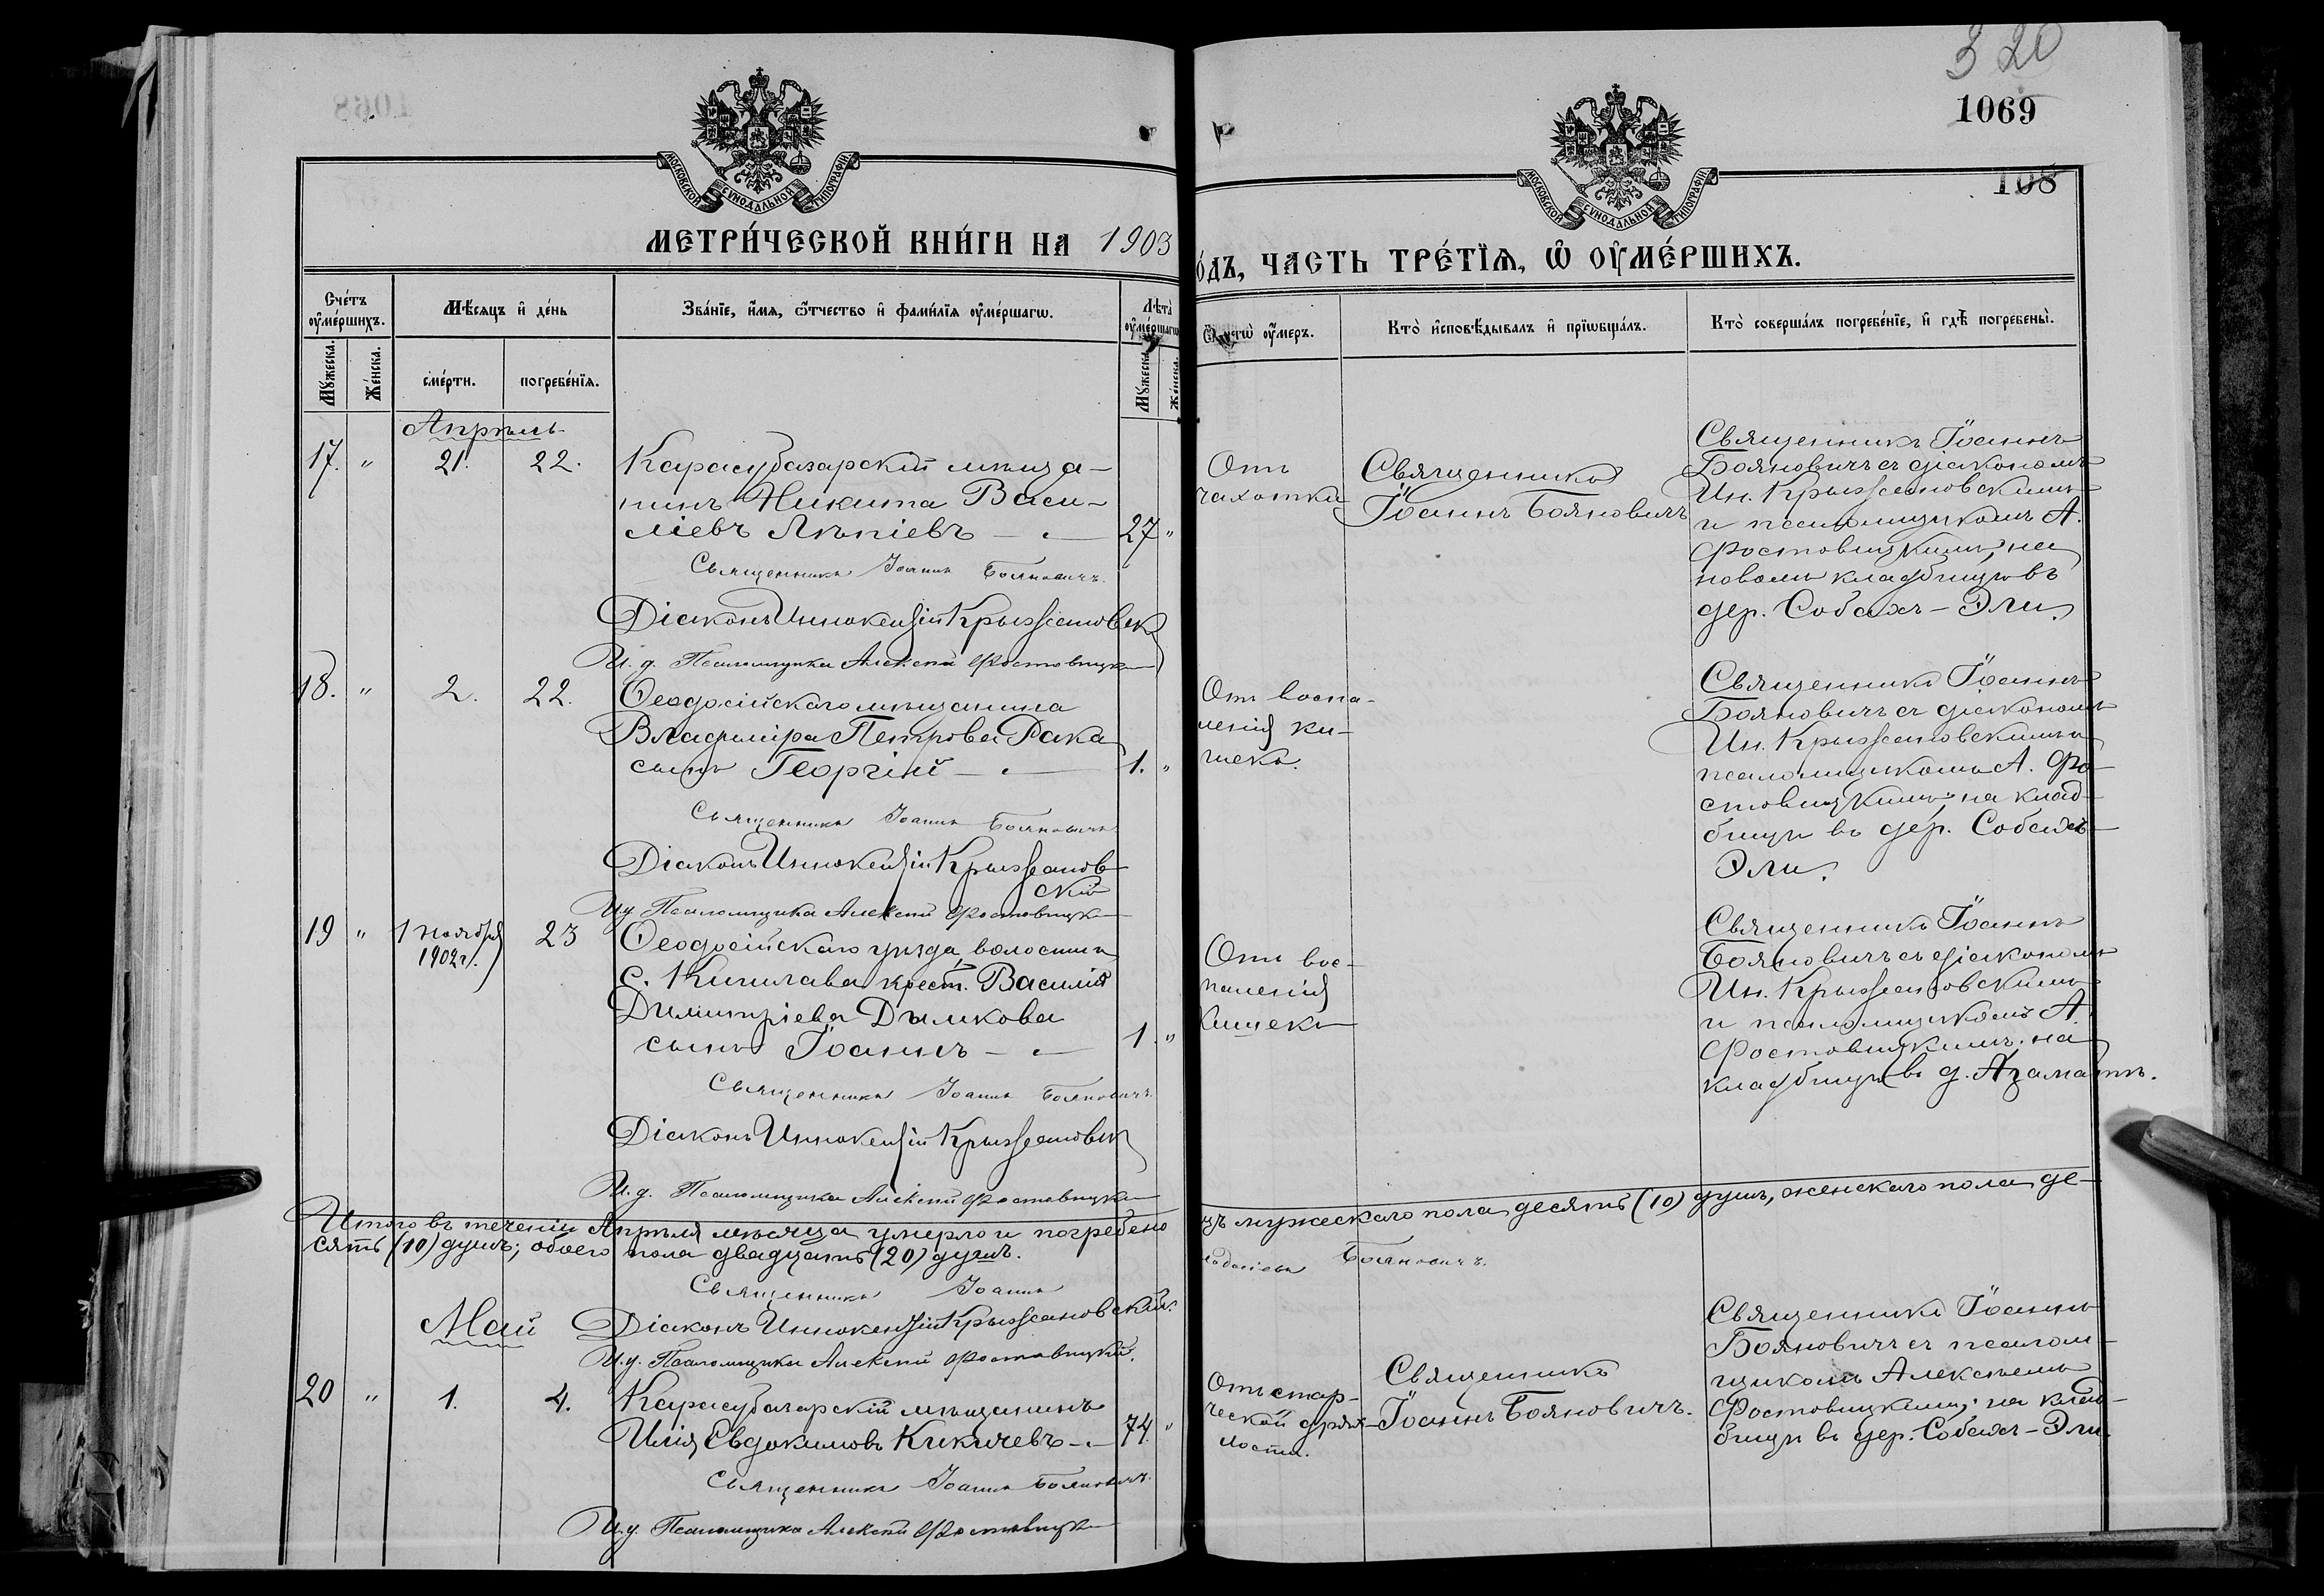 320
1069
108
МОСКОВСКОЙ СѴНОДАЛЬНОЙ ТИПОГРАФІИ
МОСКОВСКОЙ СѴНОДАЛЬНОЙ ТИПОГРАФІИ
МЕТРИ́ЧЕСКОЙ КНИ́ГИ НА 1903
о́дъ, ЧАСТЬ ТРЕ́ТІѦ, Ѡ ОУМЕ́РШИХЪ.
Сче́тъ оуме́ршихъ.
Мѣ́сяцъ и де́нь
Зва́ніе, и́мя, ѻ́тчество и фами́лія оуме́ршагѡ.
Лѣта̀ оуме́ршагѡ
оу́меръ.
Кто̀ исповѣ́дывалъ и пріѡбща́лъ.
Кто̀ соверша́лъ погребе́ніе, и гдѣ̀ погребены̀.
Му́жеска.
Же́нска.
сме́рти.
погребе́нія.
Му́жеска.
Же́нска.
Апрѣль
17. " 21. 22.
Карасубазарскій мѣща-
нинъ Никита Васи-
ліевъ Лѣпіевъ — 27 "
Священникъ Іоаннъ Бояновичъ.
Діаконъ Иннокентій Крыжановск
И. д. Псаломщика Алексѣй Фростовицк
Отъ
чахотки
Священникъ
Іоаннъ Бояновичъ
Священникъ Іоаннъ
Бояновичъ съ діакономъ
Ин. Крыжановскимъ
и псаломщикомъ А.
Фростовицкимъ, на
новомъ кладбищѣ въ
дер. Собахъ-Эли.
18. " 2. 22.
Ѳеодосійскаго мѣщанина
Владиміра Петрова Рака
сынъ Георгій — 1. "
Священникъ Іоаннъ Бояновичъ
Діаконъ Иннокентій Крыжанов
скій
И д Псаломщика Алексѣй Фростовицк
Отъ воспа-
ленія ки-
шекъ.
Священникъ Іоаннъ
Бояновичъ съ діакономъ
Ин. Крыжановскимъ и
псаломщикомъ А. Фро-
стовицкимъ; на клад-
бищѣ въ дер. Собахъ-
Эли.
19 " 1 ноября 23
1902 г.
Ѳеодосійскаго уѣзда волости и
с. Кишлава крест. Василія
Димитріева Дымкова
сынъ Іоаннъ — 1. "
Священникъ Іоаннъ Бояновичъ.
Діаконъ Иннокентій Крыжановск
И. д. Псаломщика Алексѣй Фростовицк
Отъ вос-
паленія
кишекъ
Священникъ Іоаннъ
Бояновичъ съ діакономъ
Ин. Крыжановскимъ
и псаломщикомъ А.
Фростовицкимъ; на
кладбищѣ въ д. Азаматъ.
Итого въ теченіи Апрѣля мѣсяца умерло и погребено
мужескаго пола десять (10) душъ, женскаго пола де-
сять (10) душъ; обоего пола двадцать (20) душъ.
Священникъ Іоаннъ
Бояновичъ.
Діаконъ Иннокентій Крыжановскій.
И. д. Псаломщика Алексѣй Фростовицкій.
Май
20 " 1. 4.
Карасубазарскій мѣщанинъ
Илія Евдокимовъ Кикичевъ — 74. "
Священникъ Іоаннъ Бояновичъ.
И д. Псаломщика Алексѣй Фростовицк
Отъ стар-
ческой дрях-
лости.
Священникъ
Іоаннъ Бояновичъ.
Священникъ Іоаннъ
Бояновичъ съ псалом-
щикомъ Алексѣемъ
Фростовицкимъ; на клад-
бищѣ въ дер. Собахъ-Эли